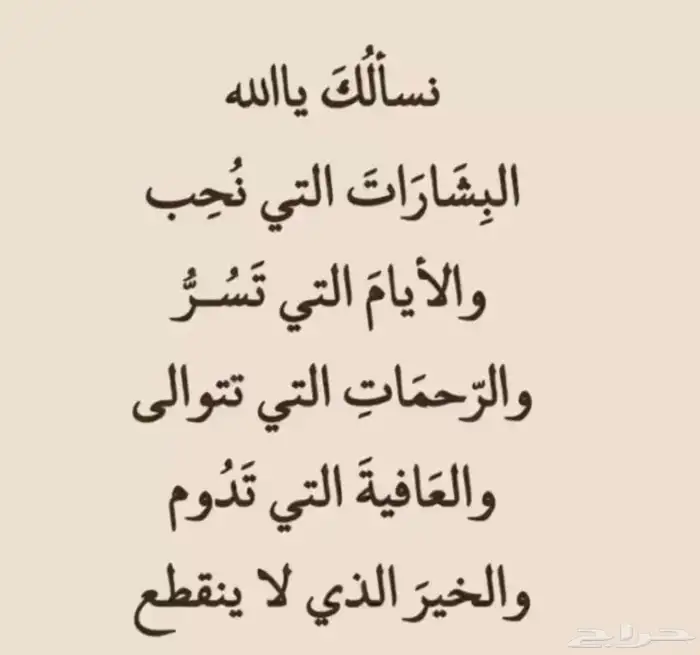 نسألُكَ ياالله
البِشَارَاتَ التي نُحِب
والأيامَ التي تَسُـرُّ
والرّحمَاتِ التي تتوالى
والعَافيةَ التي تَدُوم
والخيرَ الذي لا ينقطع
حراج